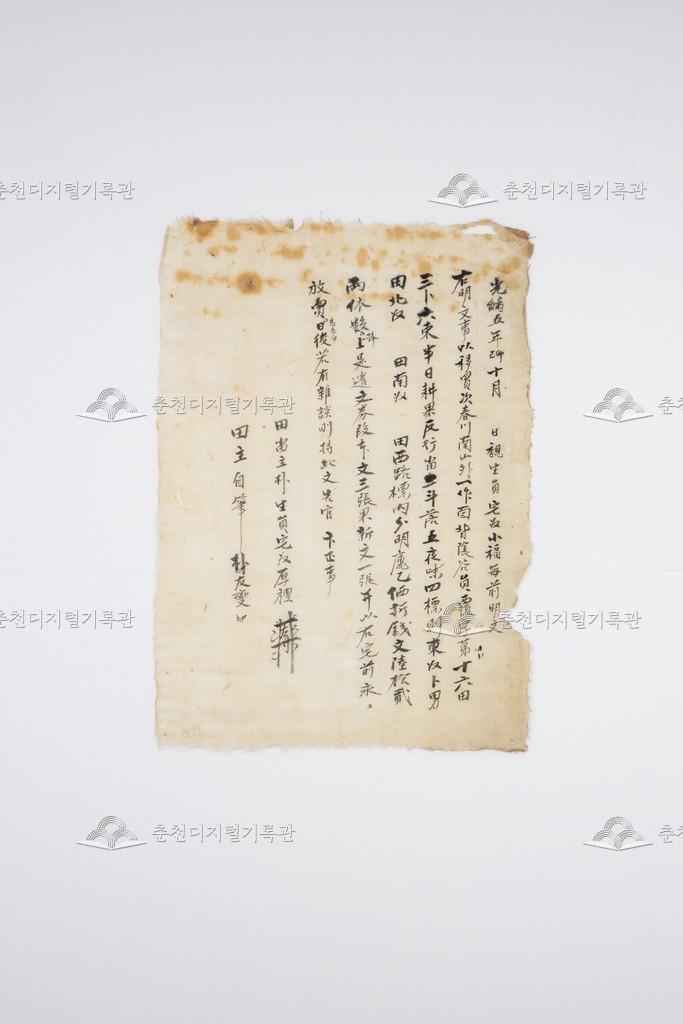 光緖五年己卯十月 日親生員宅奴小福每前明文
右明文事以移買次春川南山外一作面背陰谷員覆字第十六田
三卜六束半日耕果反行畓二斗落五夜味四標則東奴卜男
田北奴 田南奴 田西路標內分明處乙価折錢文陸拾貳
兩依數捧上是遣立券段本文三張果新文一張幷以右宅前永永
放賣日後若有雜談則持此文告官卞正事
田畓主朴生員宅奴厚種
田主自筆朴友變
춘천디지털기록관
춘천디지털기록관
춘천디지털기록관
춘천
춘천디지털기록관
춘천디지털기록관
춘천디지털기록관
춘천